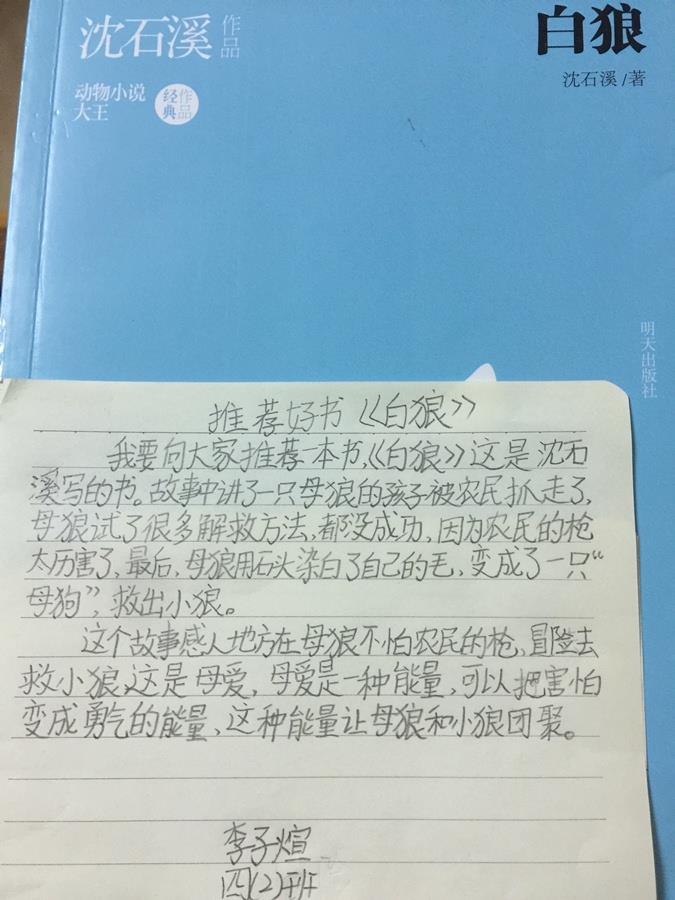 沈石溪 作品
白狼
沈石溪/著
动物小说
大王
经典作品
明天出版社
推荐好书《白狼》
我要向大家推荐一本书,《白狼》这是沈石
溪写的书。故事中讲了一只母狼的孩子被农民抓走了,
母狼试了很多解救方法,都没成功,因为农民的枪
太历害了,最后,母狼用石头染白了自己的毛,变成了一只“
母狗”,救出小狼。
这个故事感人地方在母狼不怕农民的枪,冒险去
救小狼,这是母爱,母爱是一种能量,可以把害怕
变成勇气的能量,这种能量让母狼和小狼团聚。
李子煊
四(2)班